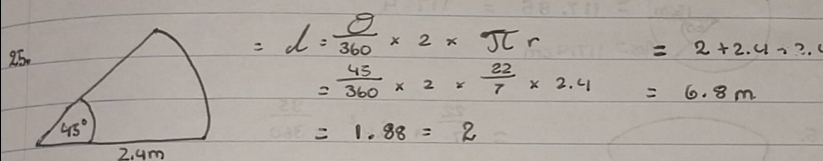 25.
45°
2.4m
= l = θ/360 × 2 × π r
= 45/360 × 2 × 22/7 × 2.4
= 1.88 = 2
= 2 + 2.4 + 2.4
= 6.8 m